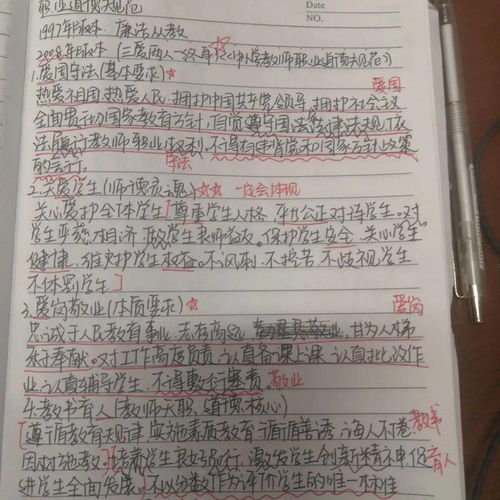 职业道德规范
Date
NO.
1997年版本. 廉洁从教
2008年版本 (三爱两人一终身) 《中小学教师职业道德规范》
1.爱国守法(基本要求)☆
爱国
热爱祖国,热爱人民,拥护中国共产党领导,拥护社会主义
全面贯彻国家教育方针,自觉遵守国法&法律法规,依
法履行教师职业权利。不得有违背党和国家方针政策
的言行。 守法
2.关爱学生(师德灵魂)☆☆ 一定会体现
关心爱护全体学生[尊重学生人格,平等公正对待学生。对
学生严慈相济,做学生良师益友。保护学生安全,关心学生
健康,维护学生权益。不讽刺.不挖苦.不歧视学生
不体罚学生]
3.爱岗敬业(本质要求)☆ 爱岗
忠诚于人民教育事业,志存高远,勤恳敬业,甘为人梯
乐于奉献。对工作高度负责,认真备课上课,认真批改作
业,认真辅导学生,不得敷衍塞责。敬业
4.教书育人(教师天职、道德核心)
[遵循教育规律,实施素质教育,循循善诱,诲人不倦. 教书
因材施教]培养学生良好品行,激发学生创新精神,促 育人
进学生全面发展。不以分数作为评价学生的唯一标准